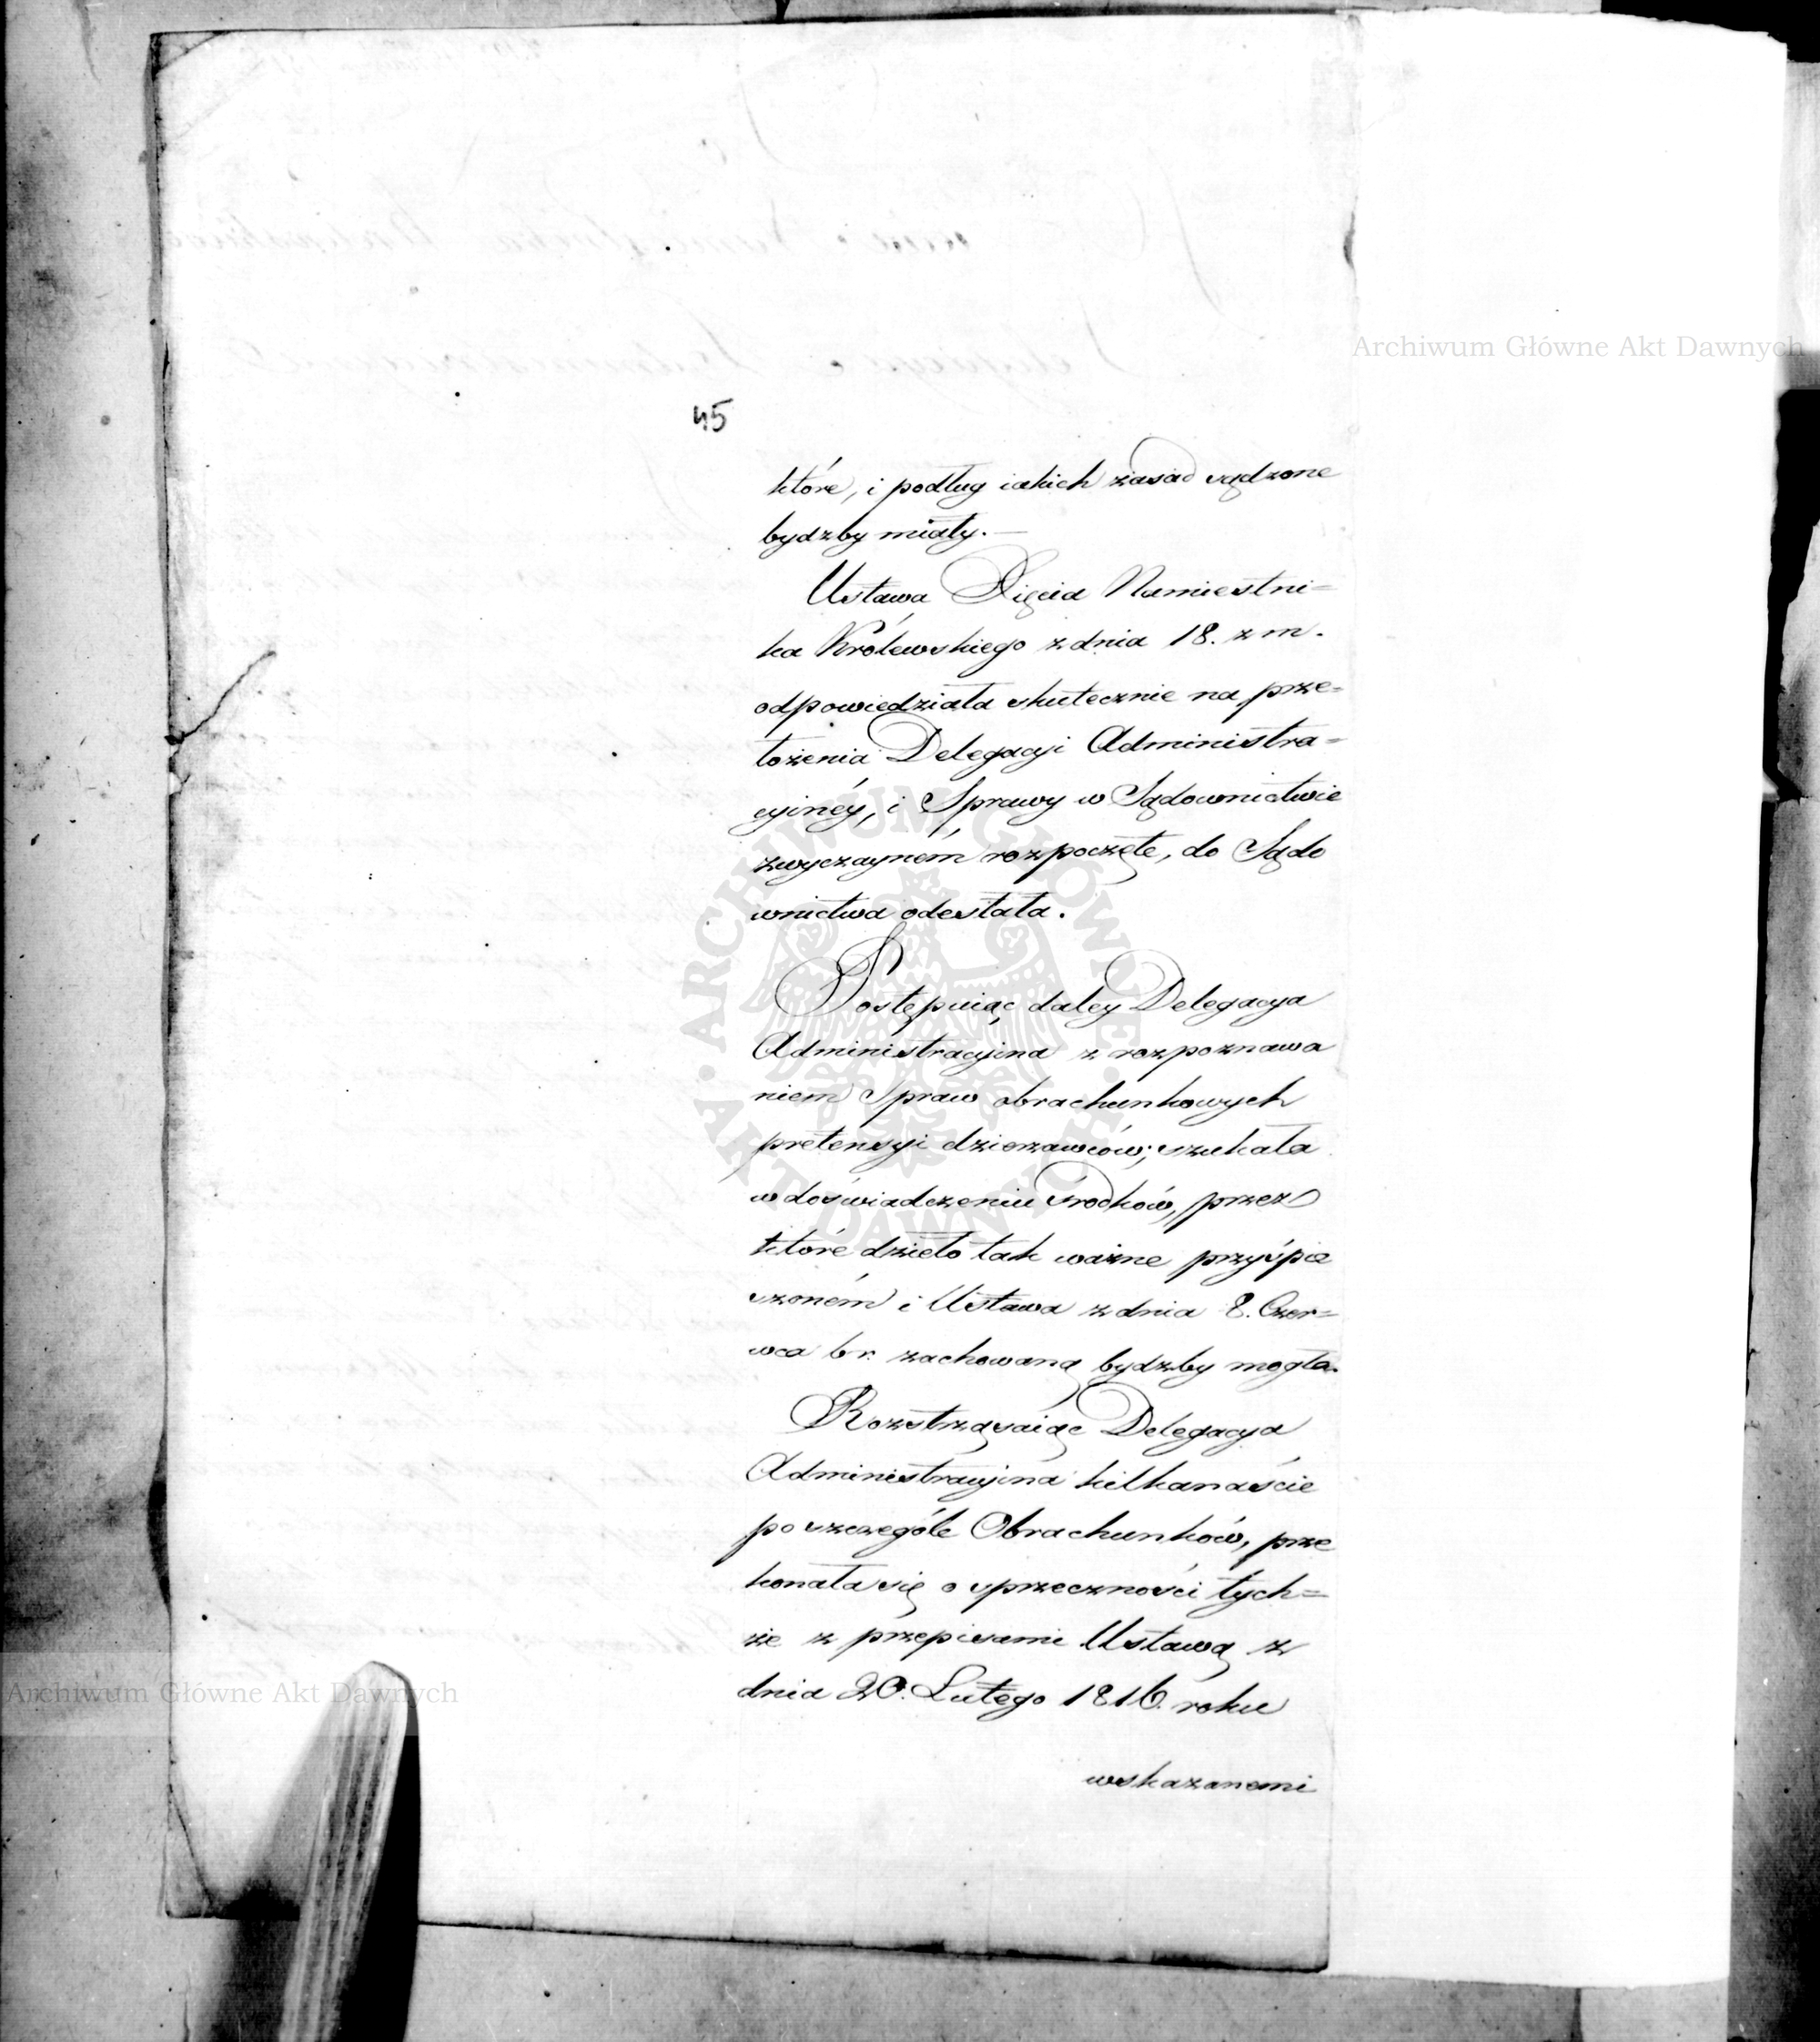 Archiwum Główne Akt Dawnych
45
które, i podług iakich zasad sądzone
bydźby miały.—
Ustawa Xięcia Namiestni=
ka Królewskiego z dnia 18. z m.
odpowiedziała skutecznie na prze=
łożenia Delegacyi Administra=
cyinéy, i Sprawy w Sądownictwie
zwyczaynem rozpoczęte, do Sądo
wnictwa odesłała.
Postępuiąc daley Delegacya
Administracyina z rozpoznawa
niem Spraw obrachunkowych
pretensyi dzierzawców; szukała
w doświadczeniu środków, przez
które dzieło tak ważne przyśpie
szoném i Ustawa z dnia 8. Czer=
wca b r. zachowaną bydźby mogła.
Rozstrząsaiąc Delegacya
Administracyina kilkanaście
poszczególe Obrachunków, prze
konała się o sprzeczności tych=
że z przepisami Ustawą z
dnia 20. Lutego 1816. roku
wskazanemi
ARCHIWUM GŁÓWNE AKT DAWNYCH
Archiwum Główne Akt Dawnych